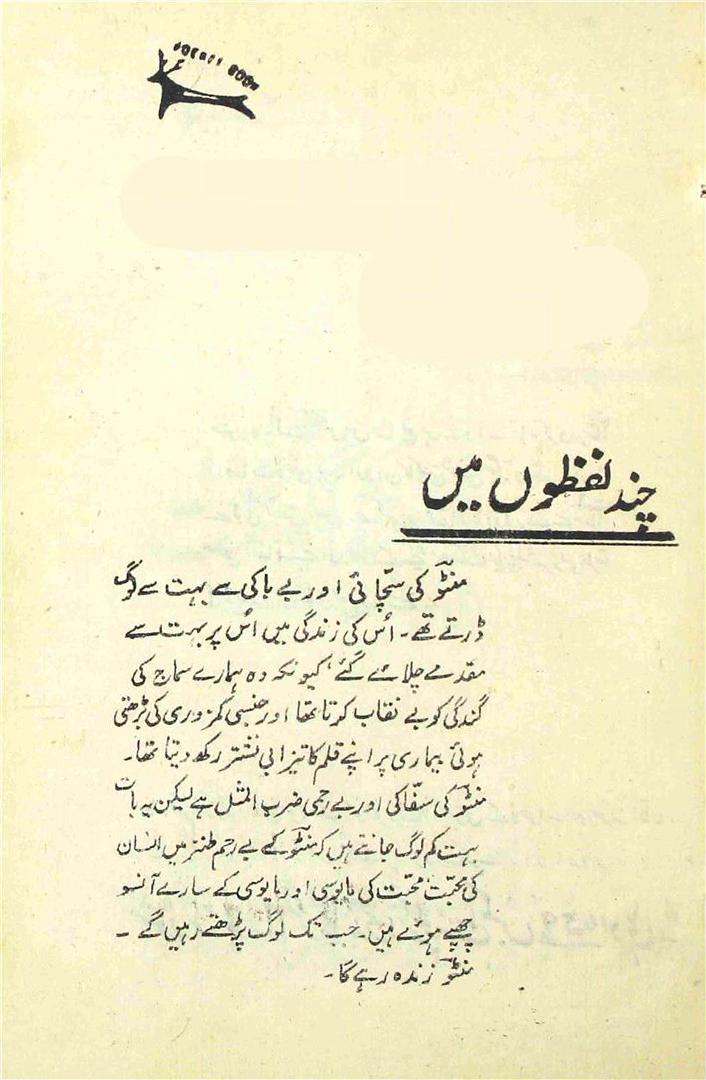 POCKET BOOK
چند لفظوں میں
منٹو کی سچّائی اور بے باکی سے بہت سے لوگ
ڈرتے تھے۔ اُس کی زندگی میں اُس پر بہت سے
مقدمے چلائے گئے، کیونکہ وہ ہمارے سماج کی
گندگی کو بے نقاب کرتا تھا اور جنسی کمزوری کی بڑھتی
ہوئی بیماری پر اپنے قلم کا تیزابی نشتر رکھ دیتا تھا۔
منٹو کی سفّاکی اور بے رحمی ضرب المثل ہے لیکن یہ بات
بہت کم لوگ جانتے ہیں کہ منٹو کے بے رحم طنز میں انسان
کی محبّت، محبّت کی مایوسی اور مایوسی کے سارے آنسو
چھپے ہوئے ہیں۔ جب تک لوگ پڑھتے رہیں گے ۔
منٹو زندہ رہے گا۔